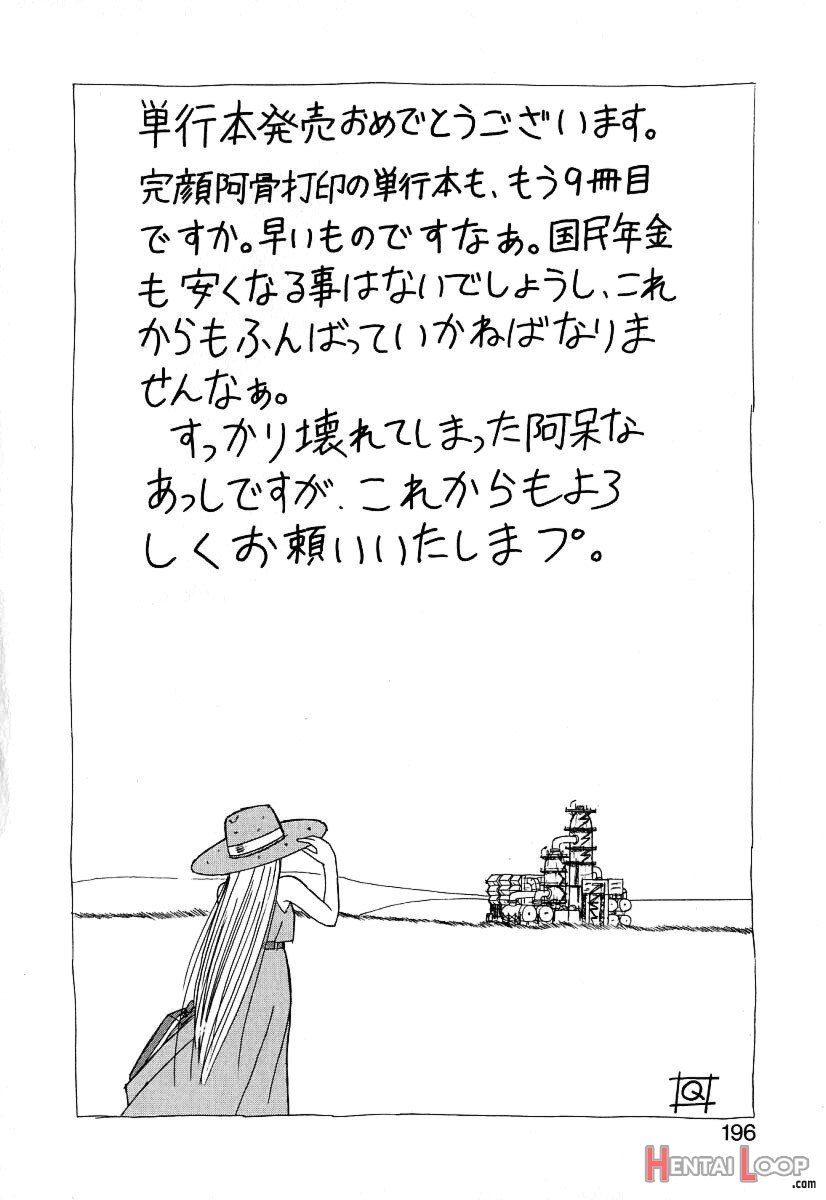 単行本発売おめでとうございます。
完顔阿骨打印の単行本も、もう9冊目
ですか。早いものですなぁ。国民年金
も安くなる事はないでしょうし、これ
からもふんばっていかねばなりま
せんなぁ。
すっかり壊れてしまった阿呆な
あっしですが、これからもよろ
しくお頼いいたしまプ。
Q
196
HENTAI LOOP
.com